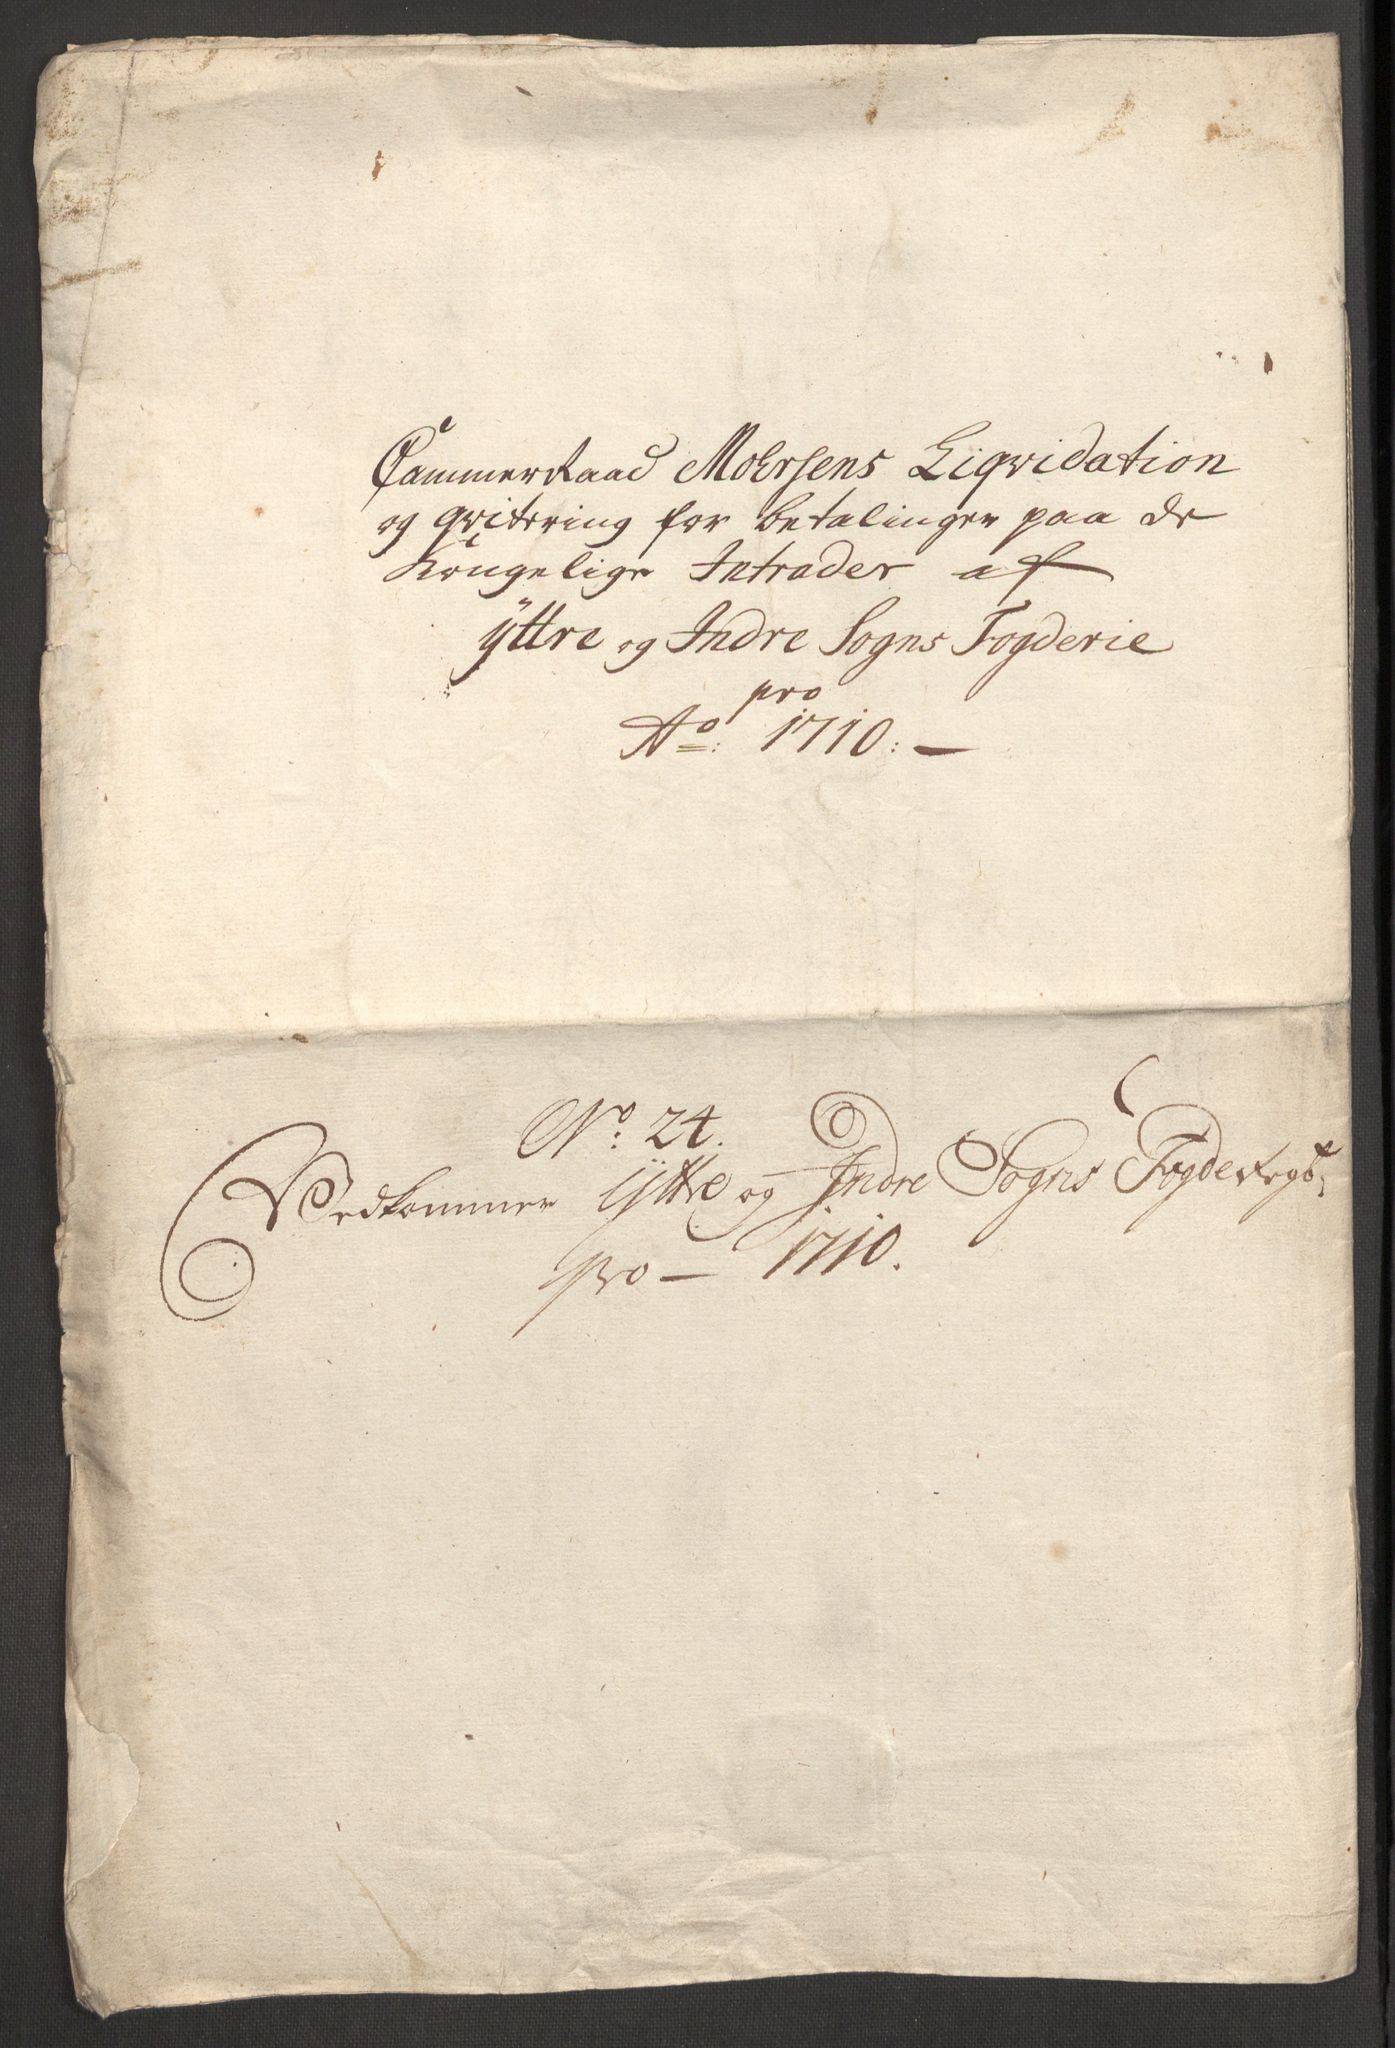 Cammerraad Moersens Liqvidation
og qvitering for betalingen paa de
Kongelige Intrader af
Yttre og Indre Sogns Fogderie
pro
Ao: 1710: —
No: 24.
Vedkommer Yttre og Indre Sogns Fogderegb:
pro — 1710.